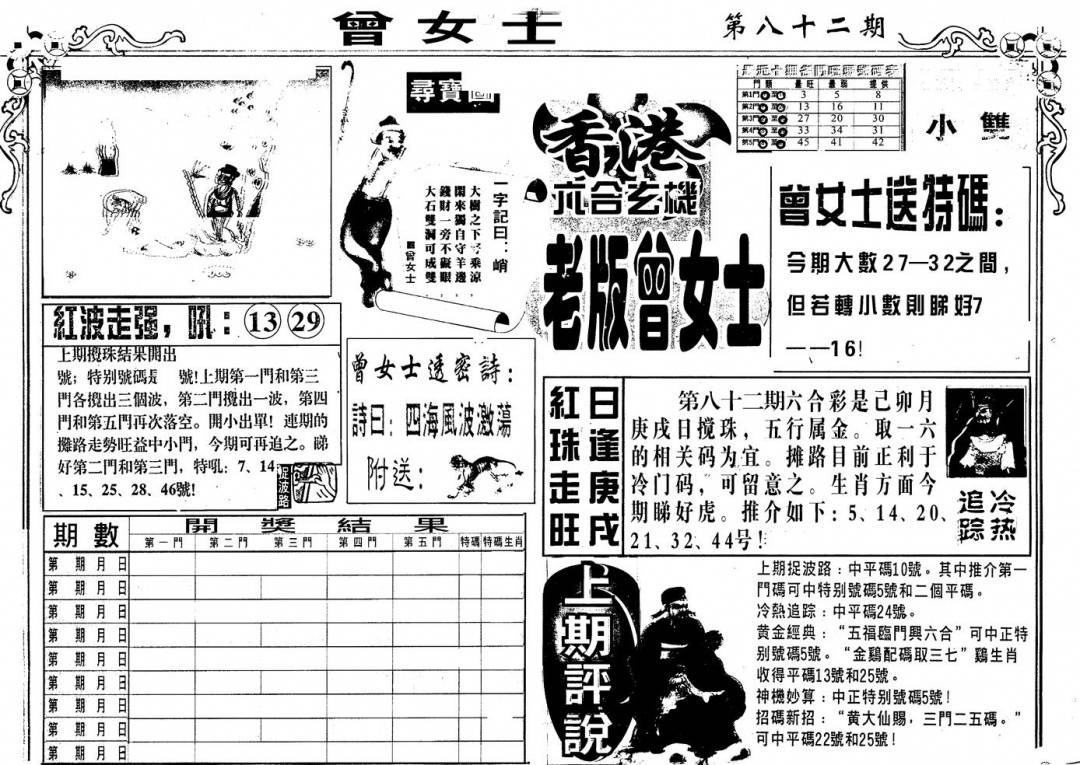 曾女士
第八十二期
尋寶圖
一字記曰：峭
大樹之下
乘涼，
閑來獨自守羊邊，
錢財一旁不礙眼，
大石雙洞可成雙
曾女士
香港
六合玄機
老版曾女士
門類 最旺 最弱 提供
第1門 至 3 5 8
第2門 至 13 16 11
第3門 至 27 20 30
第4門 至 33 34 31
第5門 至 45 41 42
小雙
曾女士送特碼：
今期大數27—32之間，
但若轉小數則睇好7
——16！
紅波走强，吼：13 29
上期攪珠結果開出
號；特别號碼是 號！上期第一門和第三
門各攪出三個波，第二門攪出一波，第四
門和第五門再次落空。開小出單！連期的
攤路走勢旺益中小門，今期可再追之。睇
好第二門和第三門，特吼：7、14
、15、25、28、46號！
捉波路
曾女士透密詩：
詩曰：四海風波激蕩
附送：
紅珠走旺
日逢庚戌
第八十二期六合彩是己卯月
庚戌日搅珠，五行属金。取一六
的相关码为宜。摊路目前正利于
冷门码，可留意之。生肖方面今
期睇好虎。推介如下：5、14、20、
21、32、44号！
冷热
追踪
期數 開獎結果
第一門 第二門 第三門 第四門 第五門 特碼 特碼生肖
第 期 月 日
第 期 月 日
第 期 月 日
第 期 月 日
第 期 月 日
第 期 月 日
第 期 月 日
第 期 月 日
第 期 月 日
上期評說
上期捉波路：中平碼10號。其中推介第一
門碼可中特别號碼5號和二個平碼。
冷熱追踪：中平碼24號。
黄金經典：“五福臨門興六合”可中正特
别號碼5號。“金鷄配碼取三七”鷄生肖
收得平碼13號和25號。
神機妙算：中正特别號碼5號！
招碼新招：“黄大仙賜，三門二五碼。”
可中平碼22號和25號！